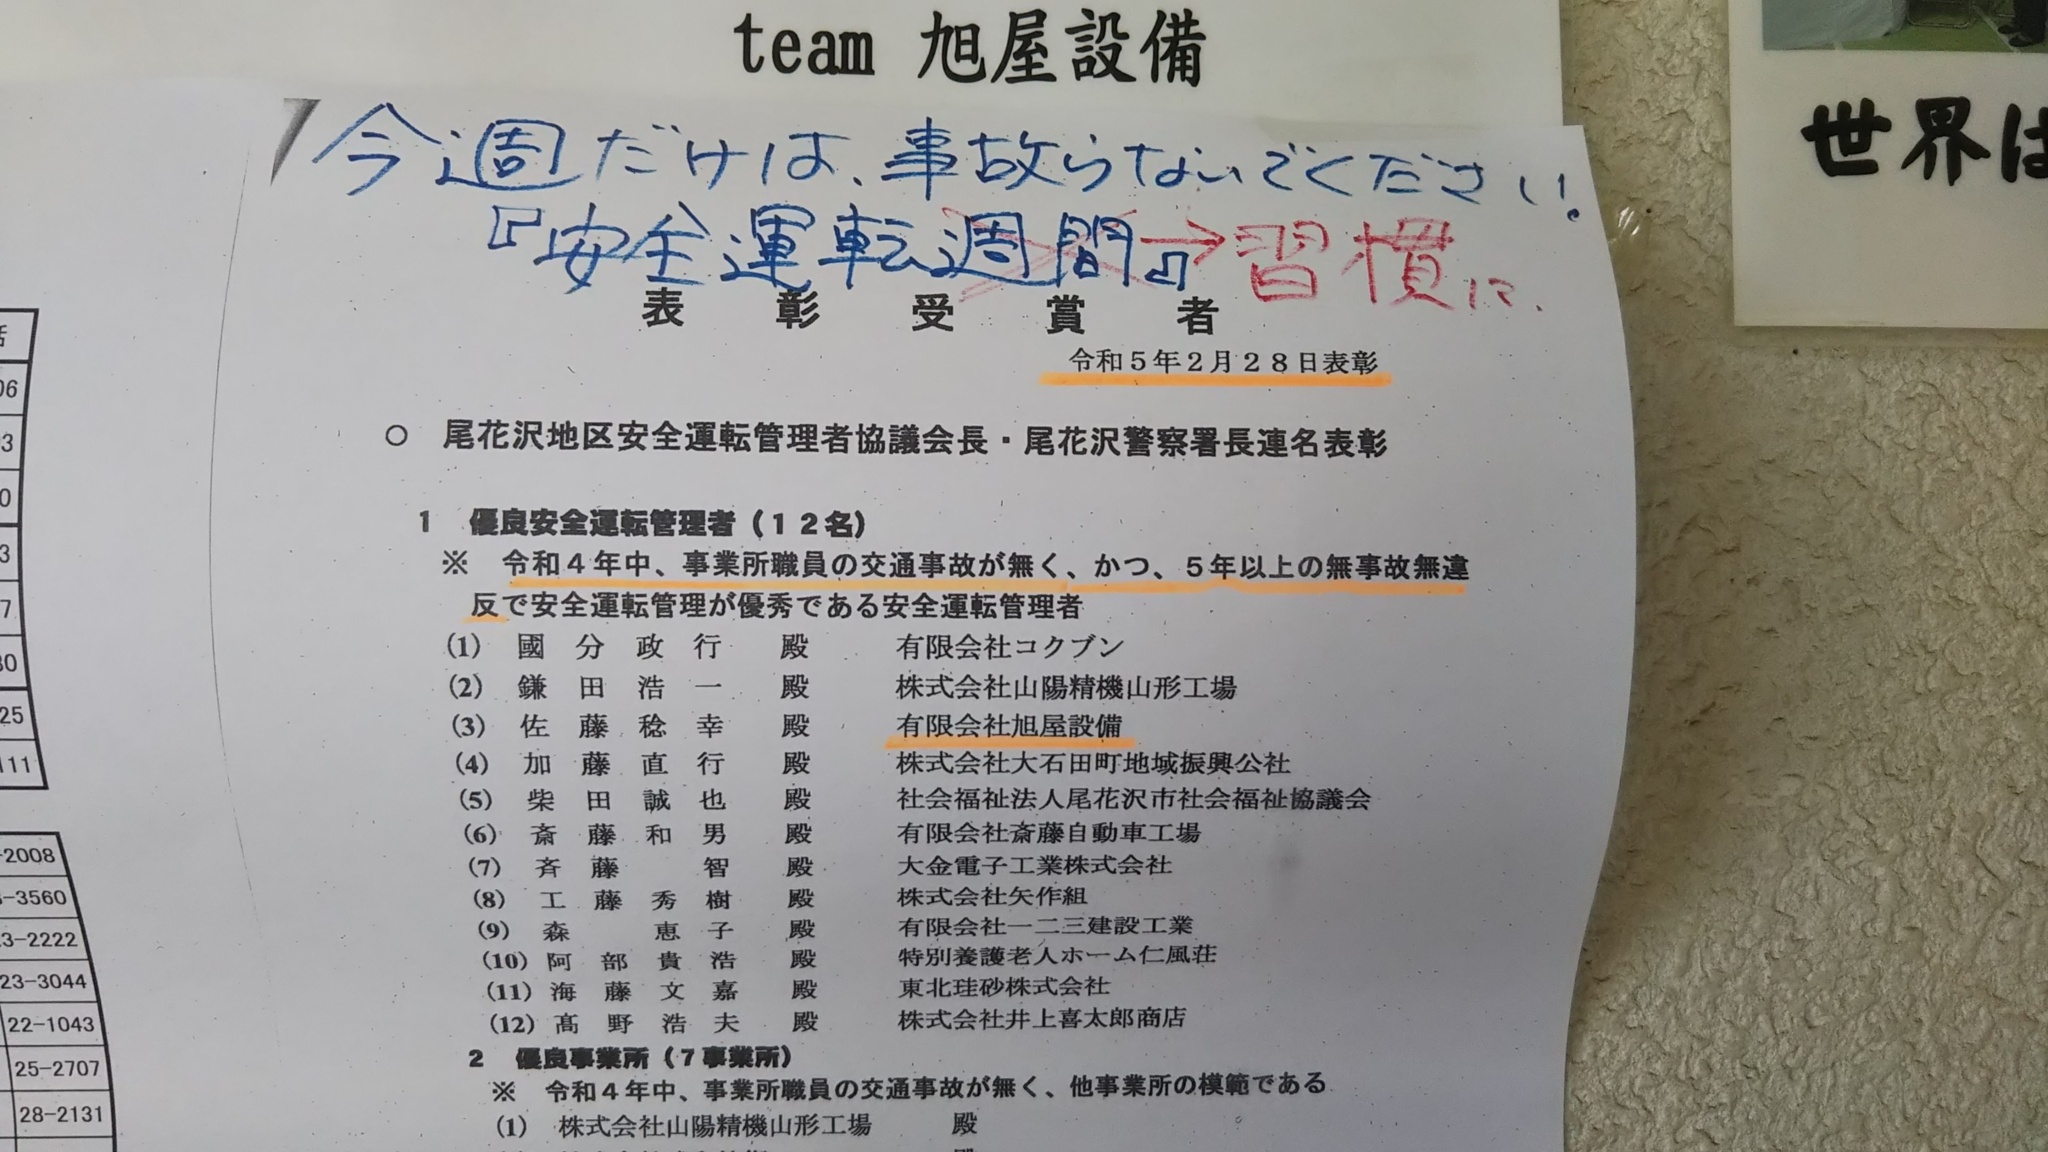 team 旭屋設備
今週だけは、事故らないでください。
『安全運転週間』→習慣に、
表彰受賞者
令和5年2月28日表彰
○ 尾花沢地区安全運転管理者協議会長・尾花沢警察署長連名表彰
1 優良安全運転管理者(12名)
※ 令和4年中、事業所職員の交通事故が無く、かつ、5年以上の無事故無違
反で安全運転管理が優秀である安全運転管理者
(1) 國分政行 殿 有限会社コクブン
(2) 鎌田浩一 殿 株式会社山陽精機山形工場
(3) 佐藤稔幸 殿 有限会社旭屋設備
(4) 加藤直行 殿 株式会社大石田町地域振興公社
(5) 柴田誠也 殿 社会福祉法人尾花沢市社会福祉協議会
(6) 斎藤和男 殿 有限会社斎藤自動車工場
(7) 斉藤 智 殿 大金電子工業株式会社
(8) 工藤秀樹 殿 株式会社矢作組
(9) 森 恵子 殿 有限会社一二三建設工業
(10) 阿部貴浩 殿 特別養護老人ホーム仁風荘
(11) 海藤文嘉 殿 東北珪砂株式会社
(12) 髙野浩夫 殿 株式会社井上喜太郎商店
2 優良事業所(7事業所)
※ 令和4年中、事業所職員の交通事故が無く、他事業所の模範である
(1) 株式会社山陽精機山形工場 殿
世界は
話
06
03
0
3
7
30
25
111
-2008
-3560
23-2222
23-3044
22-1043
25-2707
28-2131